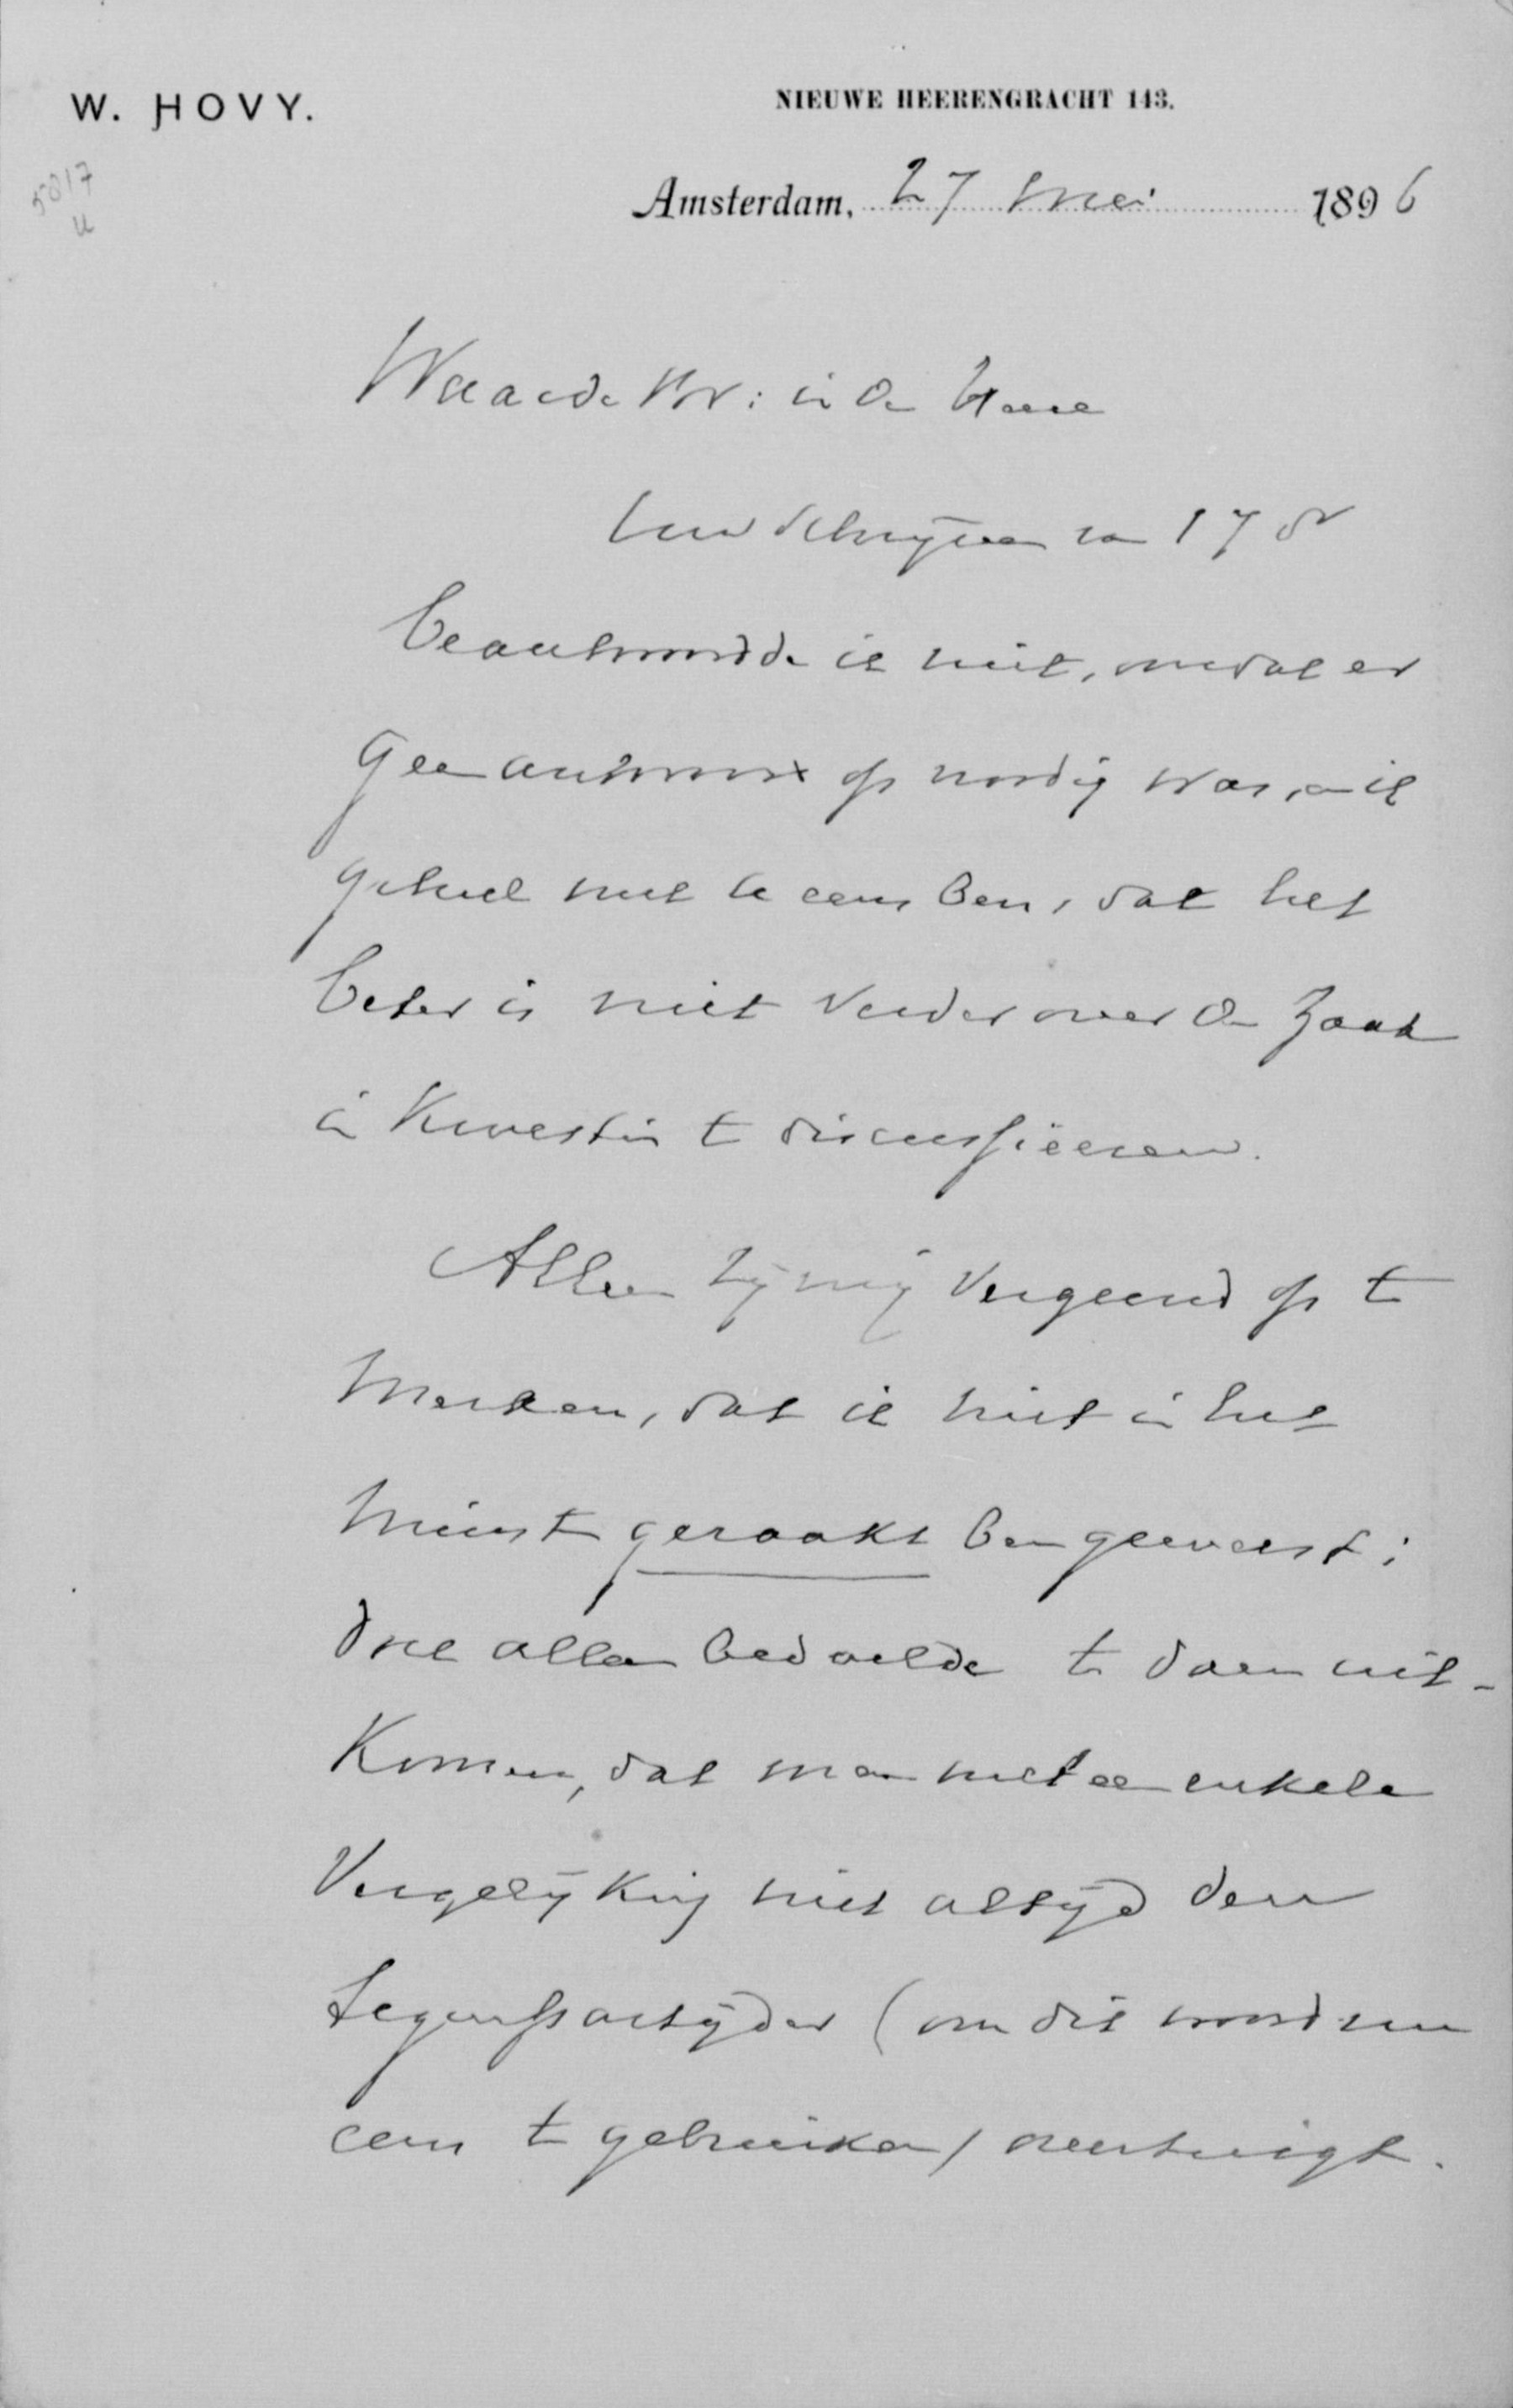 W. HOVY.
NIEUWE HEERENGRACHT 143.
5817
Amsterdam, 27 Mei 1896
Waarde Br: in de Heere
Uw schrijven van 17 dr
beantwoordde ik niet, omdat er
geen antwoord op noodig was, en ik
geheel met U eens ben, dat het
beter is niet verder over de zaak
in kwestie te discussiëeren.
Alleen zij mij vergund op te
merken, dat ik niet in het
minste geraakt ben geweest;
doch alleen bedoelde te doen uit-
komen, dat men met een enkele
vergelijking niet altijd den
tegenpartijder (om dit woord nu
eens te gebruiken) overtuigt.